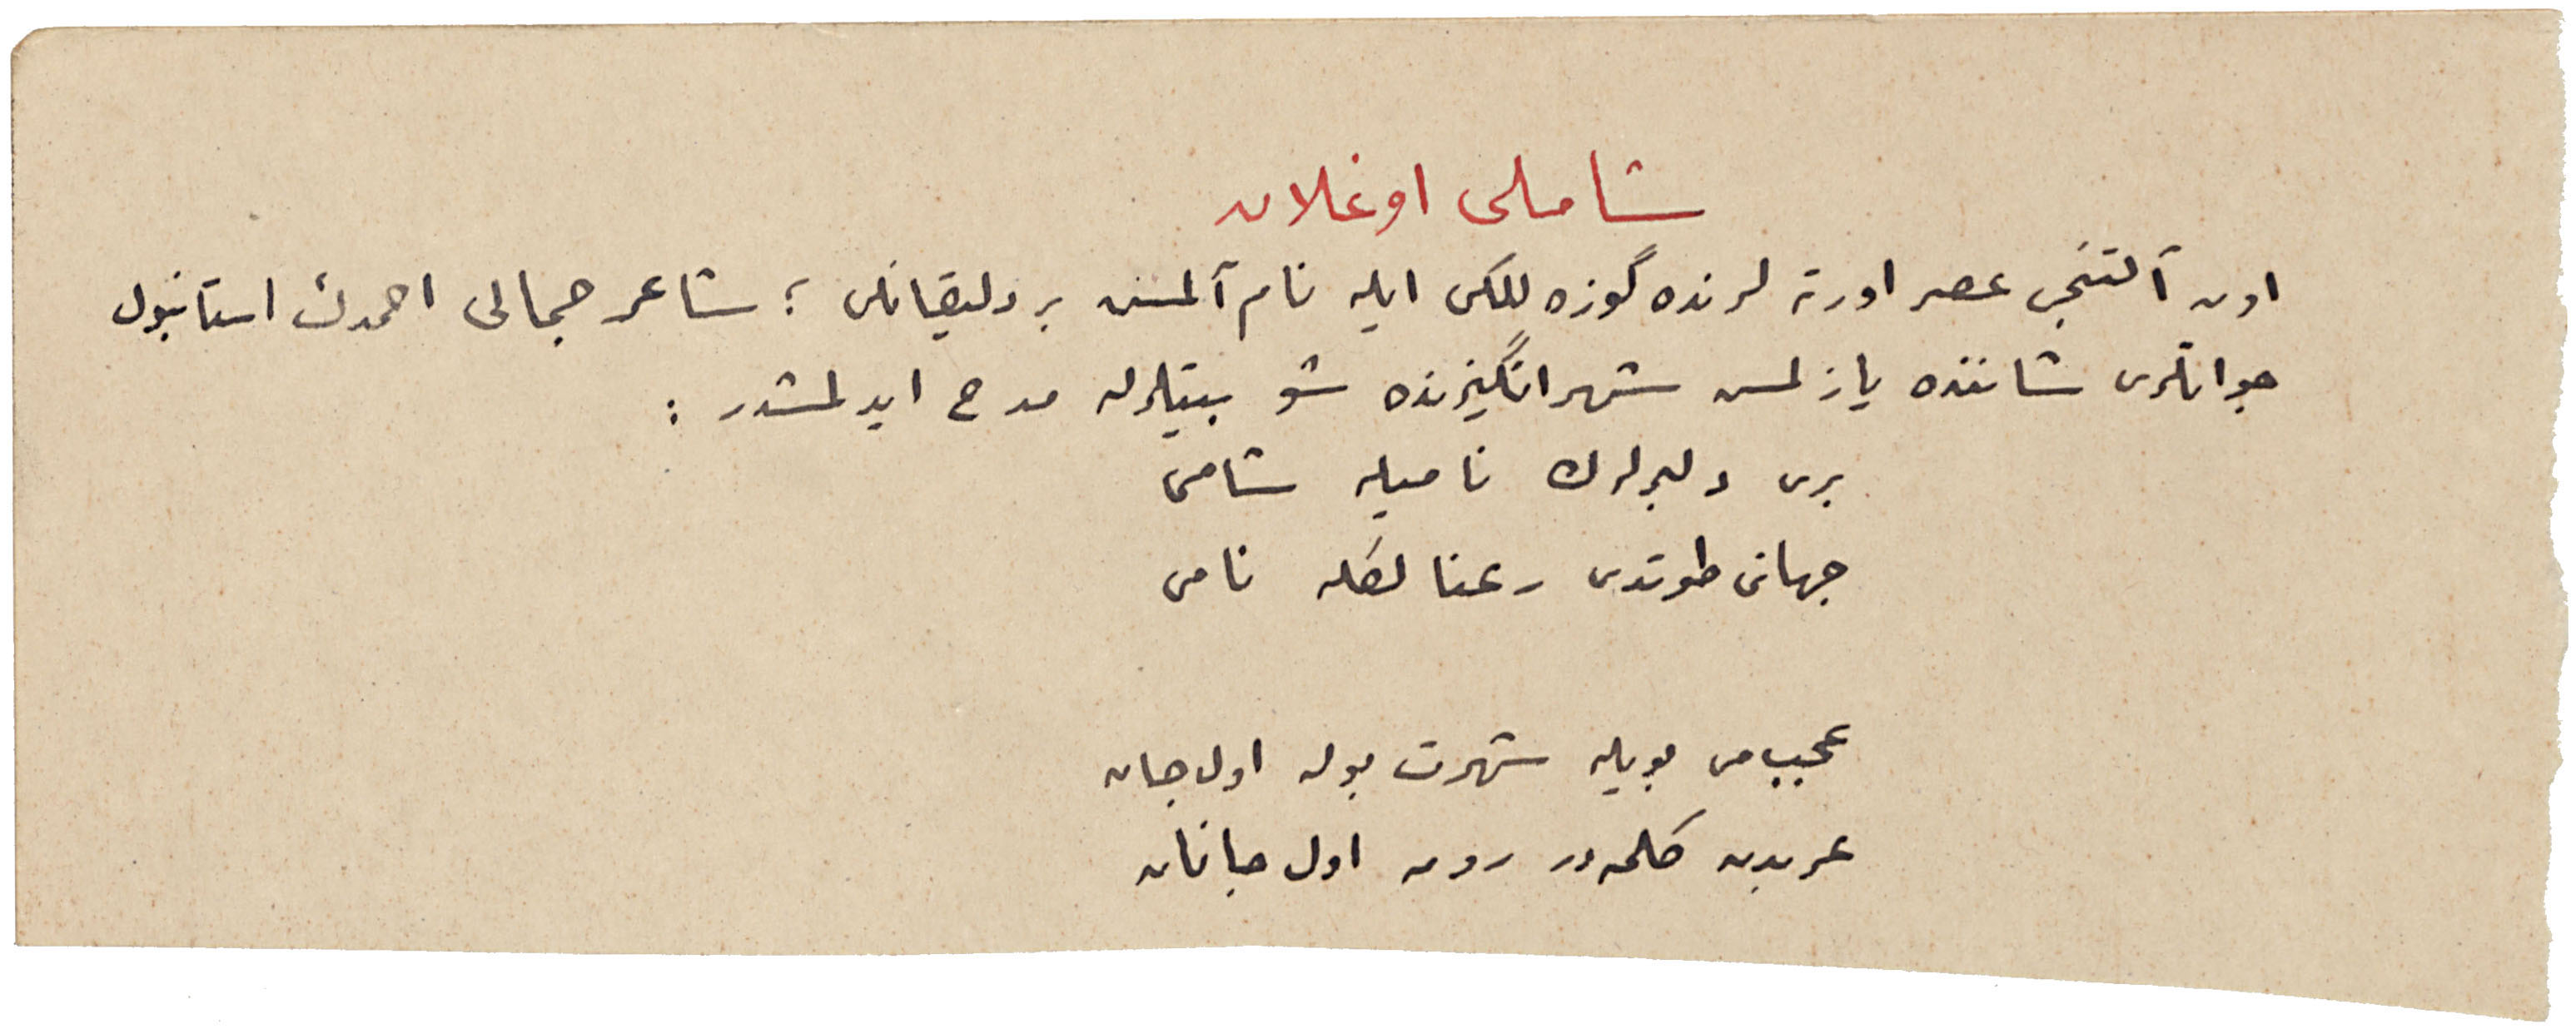 شاملی اوغلان
اون آلتنجی عصر اورته لرنده گوزه للکی ایله نام آلمش بر دلیقانلی ؛ شاعر جمالی احمدڭ استانبول
جوانلری شاننده یازلمش شهرانگیزنده شو بیتلرله مدح ایدلمشدر :
بری دلبرلرڭ نامیله شامی
جهانی طوتدی رعنالقله نامی
عجب می بویله شهرت بوله اول جان
عربدن کلمه در رومه اول جانان